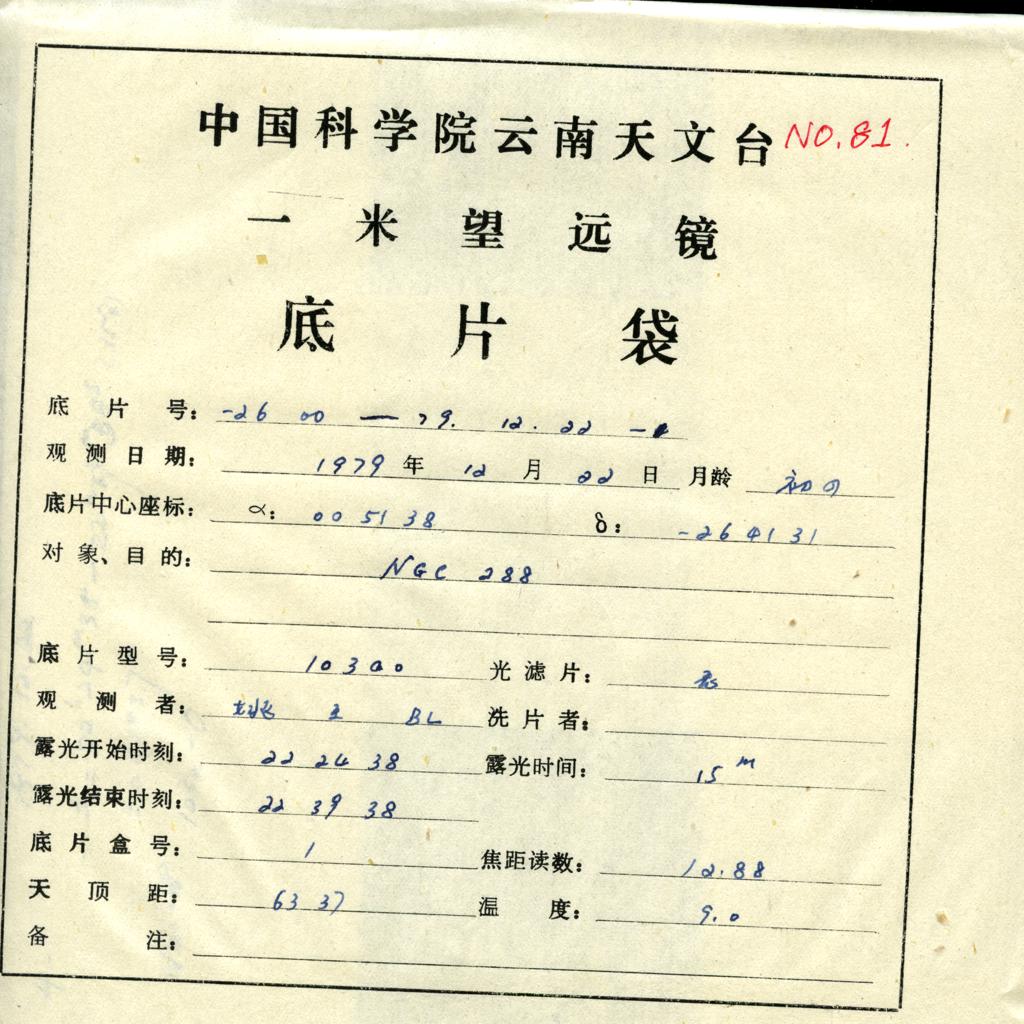 中国科学院云南天文台 NO.81.
一米望远镜
底片袋
底片号: -26 00 — 79. 12. 22 -1
观测日期: 1979 年 12 月 22 日 月龄 初四
底片中心座标: α: 00 51 38 δ: -26 41 31
对象、目的: NGC 288
底片型号: 103a0 光滤片:
观测者: 王 BL 洗片者:
露光开始时刻: 22 24 38 露光时间: 15 m
露光结束时刻: 22 39 38
底片盒号: 1 焦距读数: 12.88
天顶距: 63 37 温度: 9.0
备注: